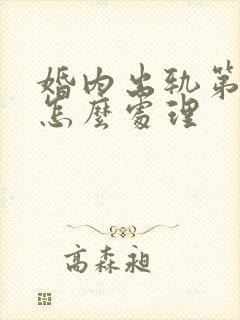 婚内出轨第
怎麼處理
高森昶